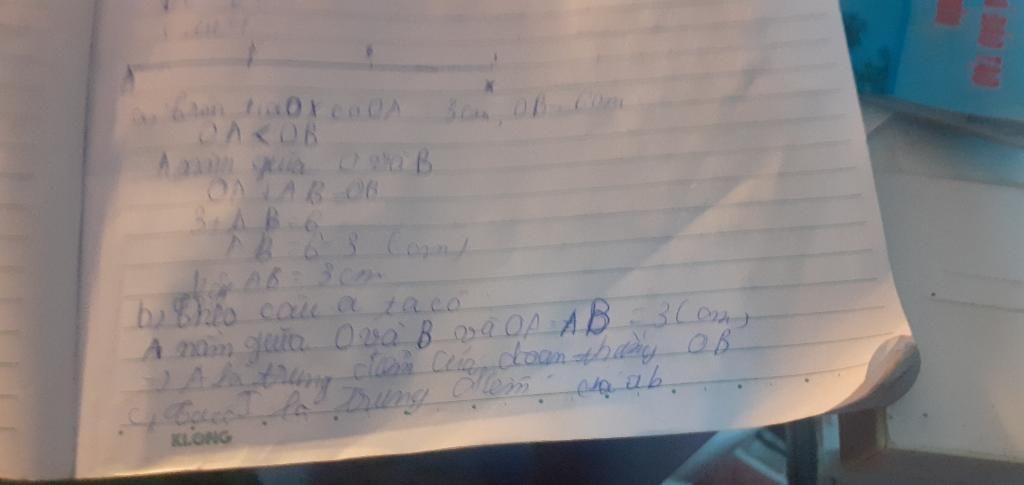 a, trên tia OX có OA 3cm, OB = 6cm
OA < OB
A nằm giữa O và B
OA + AB = OB
3 + AB = 6
AB = 6 - 3 (cm)
Vậy AB = 3cm
b, Theo câu a ta có
A nằm giữa O và B và OA = AB = 3 (cm)
=> A là trung điểm của đoạn thẳng OB
c, I là Trung điểm của ab
KLONG